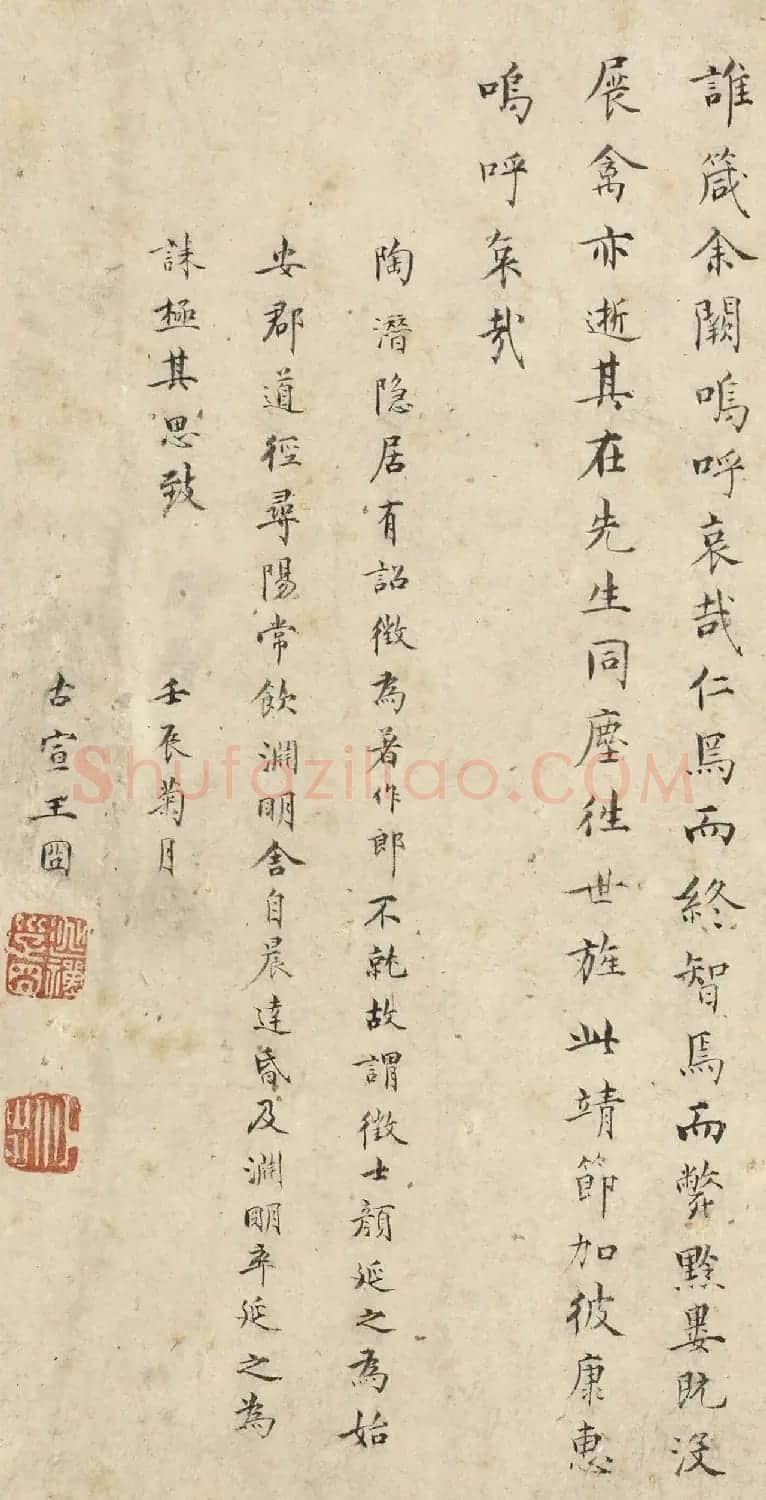 誰箴余闕嗚呼哀哉仁焉而終智焉而斃黔婁既沒
展禽亦逝其在先生同塵往世旌此靖節加彼康惠
嗚呼哀哉
陶潛隐居有詔徵為著作郎不就故謂徵士顏延之為始
安郡道徑尋陽常飲淵明舍自晨達昏及淵明卒延之為
誄極其思致
壬辰菊月
古宣王図
Shufaziliao.COM